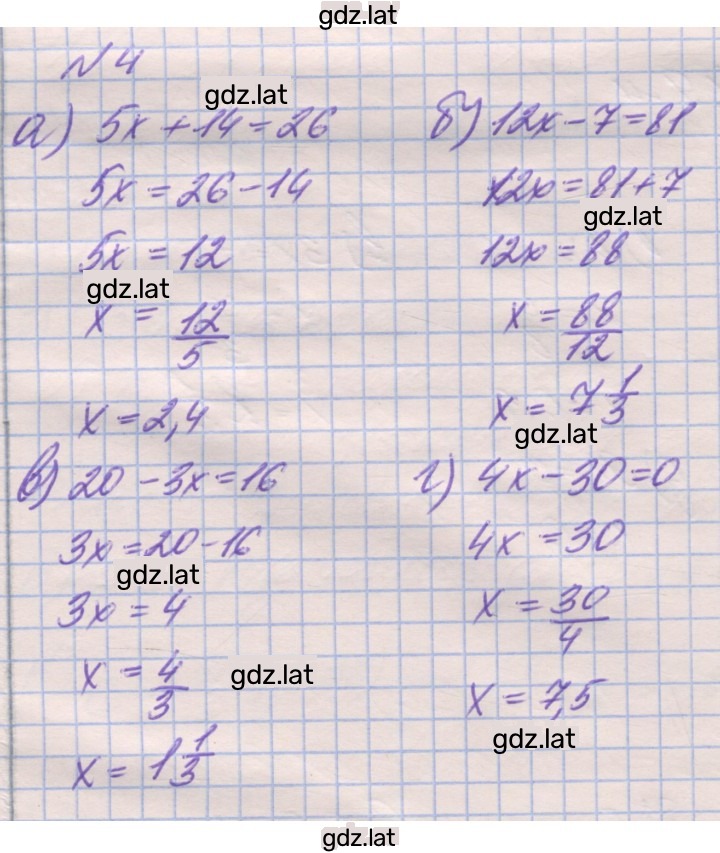 gdz.lat
№ 4
gdz.lat
а) 5x + 14 = 26
5x = 26 - 14
5x = 12
gdz.lat
x = 12/5
x = 2,4
б) 12x - 7 = 81
12x = 81 + 7
gdz.lat
12x = 88
x = 88/12
x = 7 1/3
gdz.lat
в) 20 - 3x = 16
3x = 20 - 16
gdz.lat
3x = 4
x = 4/3
gdz.lat
x = 1 1/3
г) 4x - 30 = 0
4x = 30
x = 30/4
x = 7,5
gdz.lat
gdz.lat